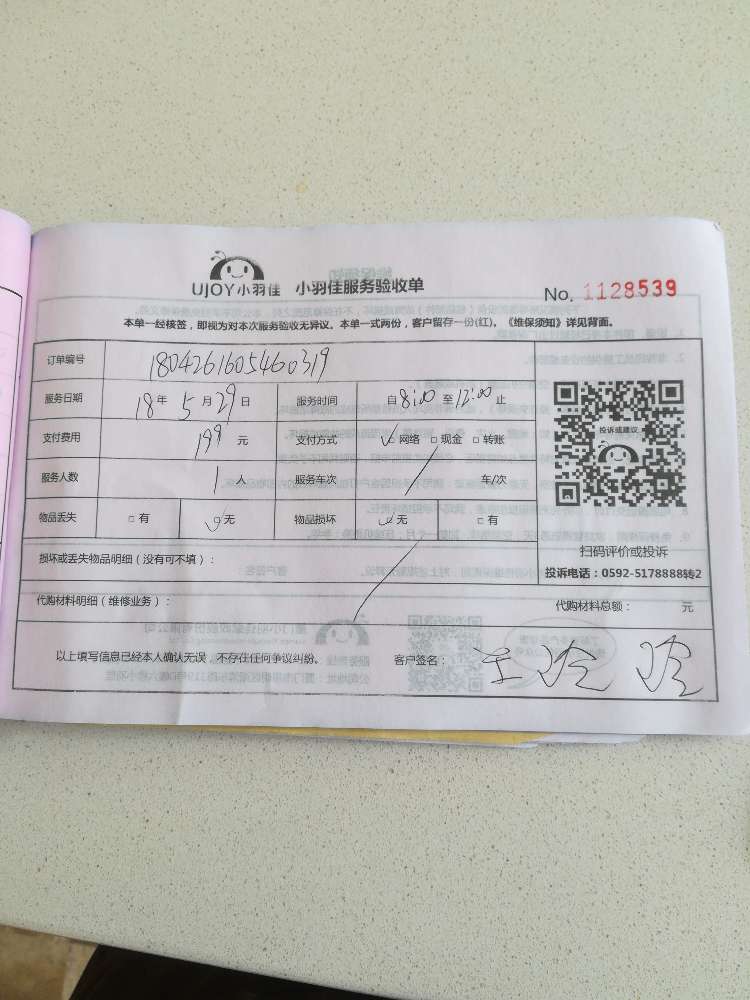 UJOY小羽佳 小羽佳服务验收单 No. 1128539
本单一经核签，即视为对本次服务验收无异议。本单一式两份，客户留存一份(红)。《维保须知》详见背面。
订单编号 1804261605460319
服务日期 18 年 5 月 29 日 服务时间 自 8:00 至 12:00 止
支付费用 199 元 支付方式 网络 现金 转账
服务人数 1 人 服务车次 / 车/次
物品丢失 有 无 物品损坏 无 有
投诉或建议
扫码评价或投诉
投诉电话：0592-5178888转2
损坏或丢失物品明细（没有可不填）：
代购材料明细（维修业务）： 代购材料总额： 元
以上填写信息已经本人确认无误，不存在任何争议纠纷。 客户签名： 王玲玲